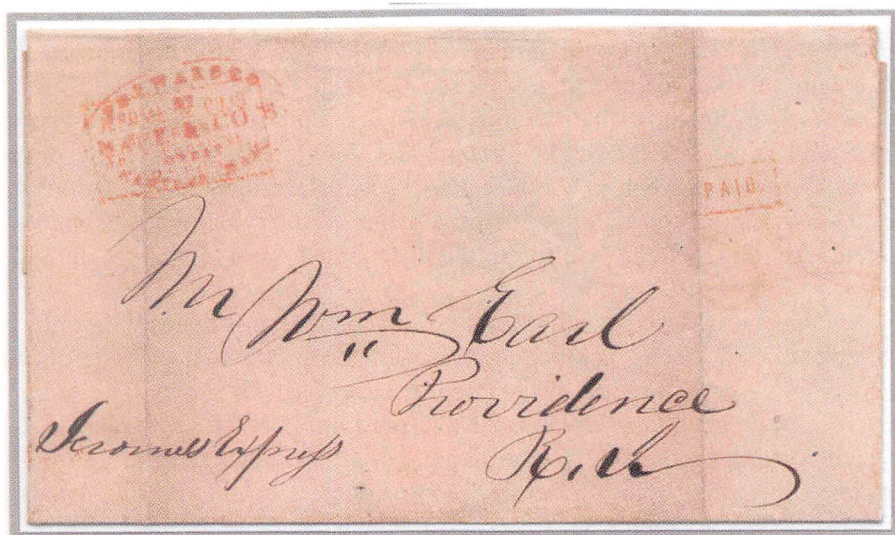 FORWARDED
& CO'S
PAID.
Mr Wm Earl
Providence
R. I.
Jeromes Express